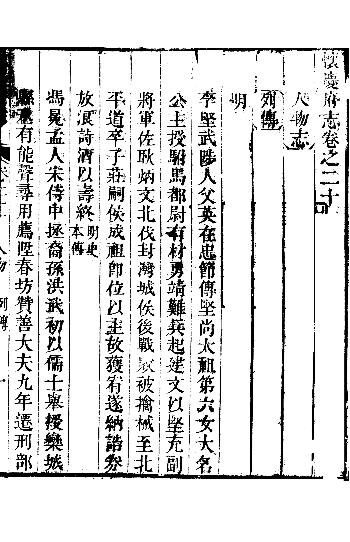 懷慶府志卷之二十
人物志
列傳
明
李堅武陟人父英在忠節傳堅尚太祖第六女大名
公主授駙馬都尉有材勇靖難兵起建文以堅充副
將軍佐耿炳文北伐封灤城侯後戰敗被擒械至北
平道卒子莊嗣侯成祖即位以主故獲宥遂納誥券
放浪詩酒以壽終明史本傳
馮晃孟人宋侍中拯裔孫洪武初以儒士舉授欒城
縣丞有能聲尋用薦陞春坊贊善大夫九年遷刑部
人物 列傳 一